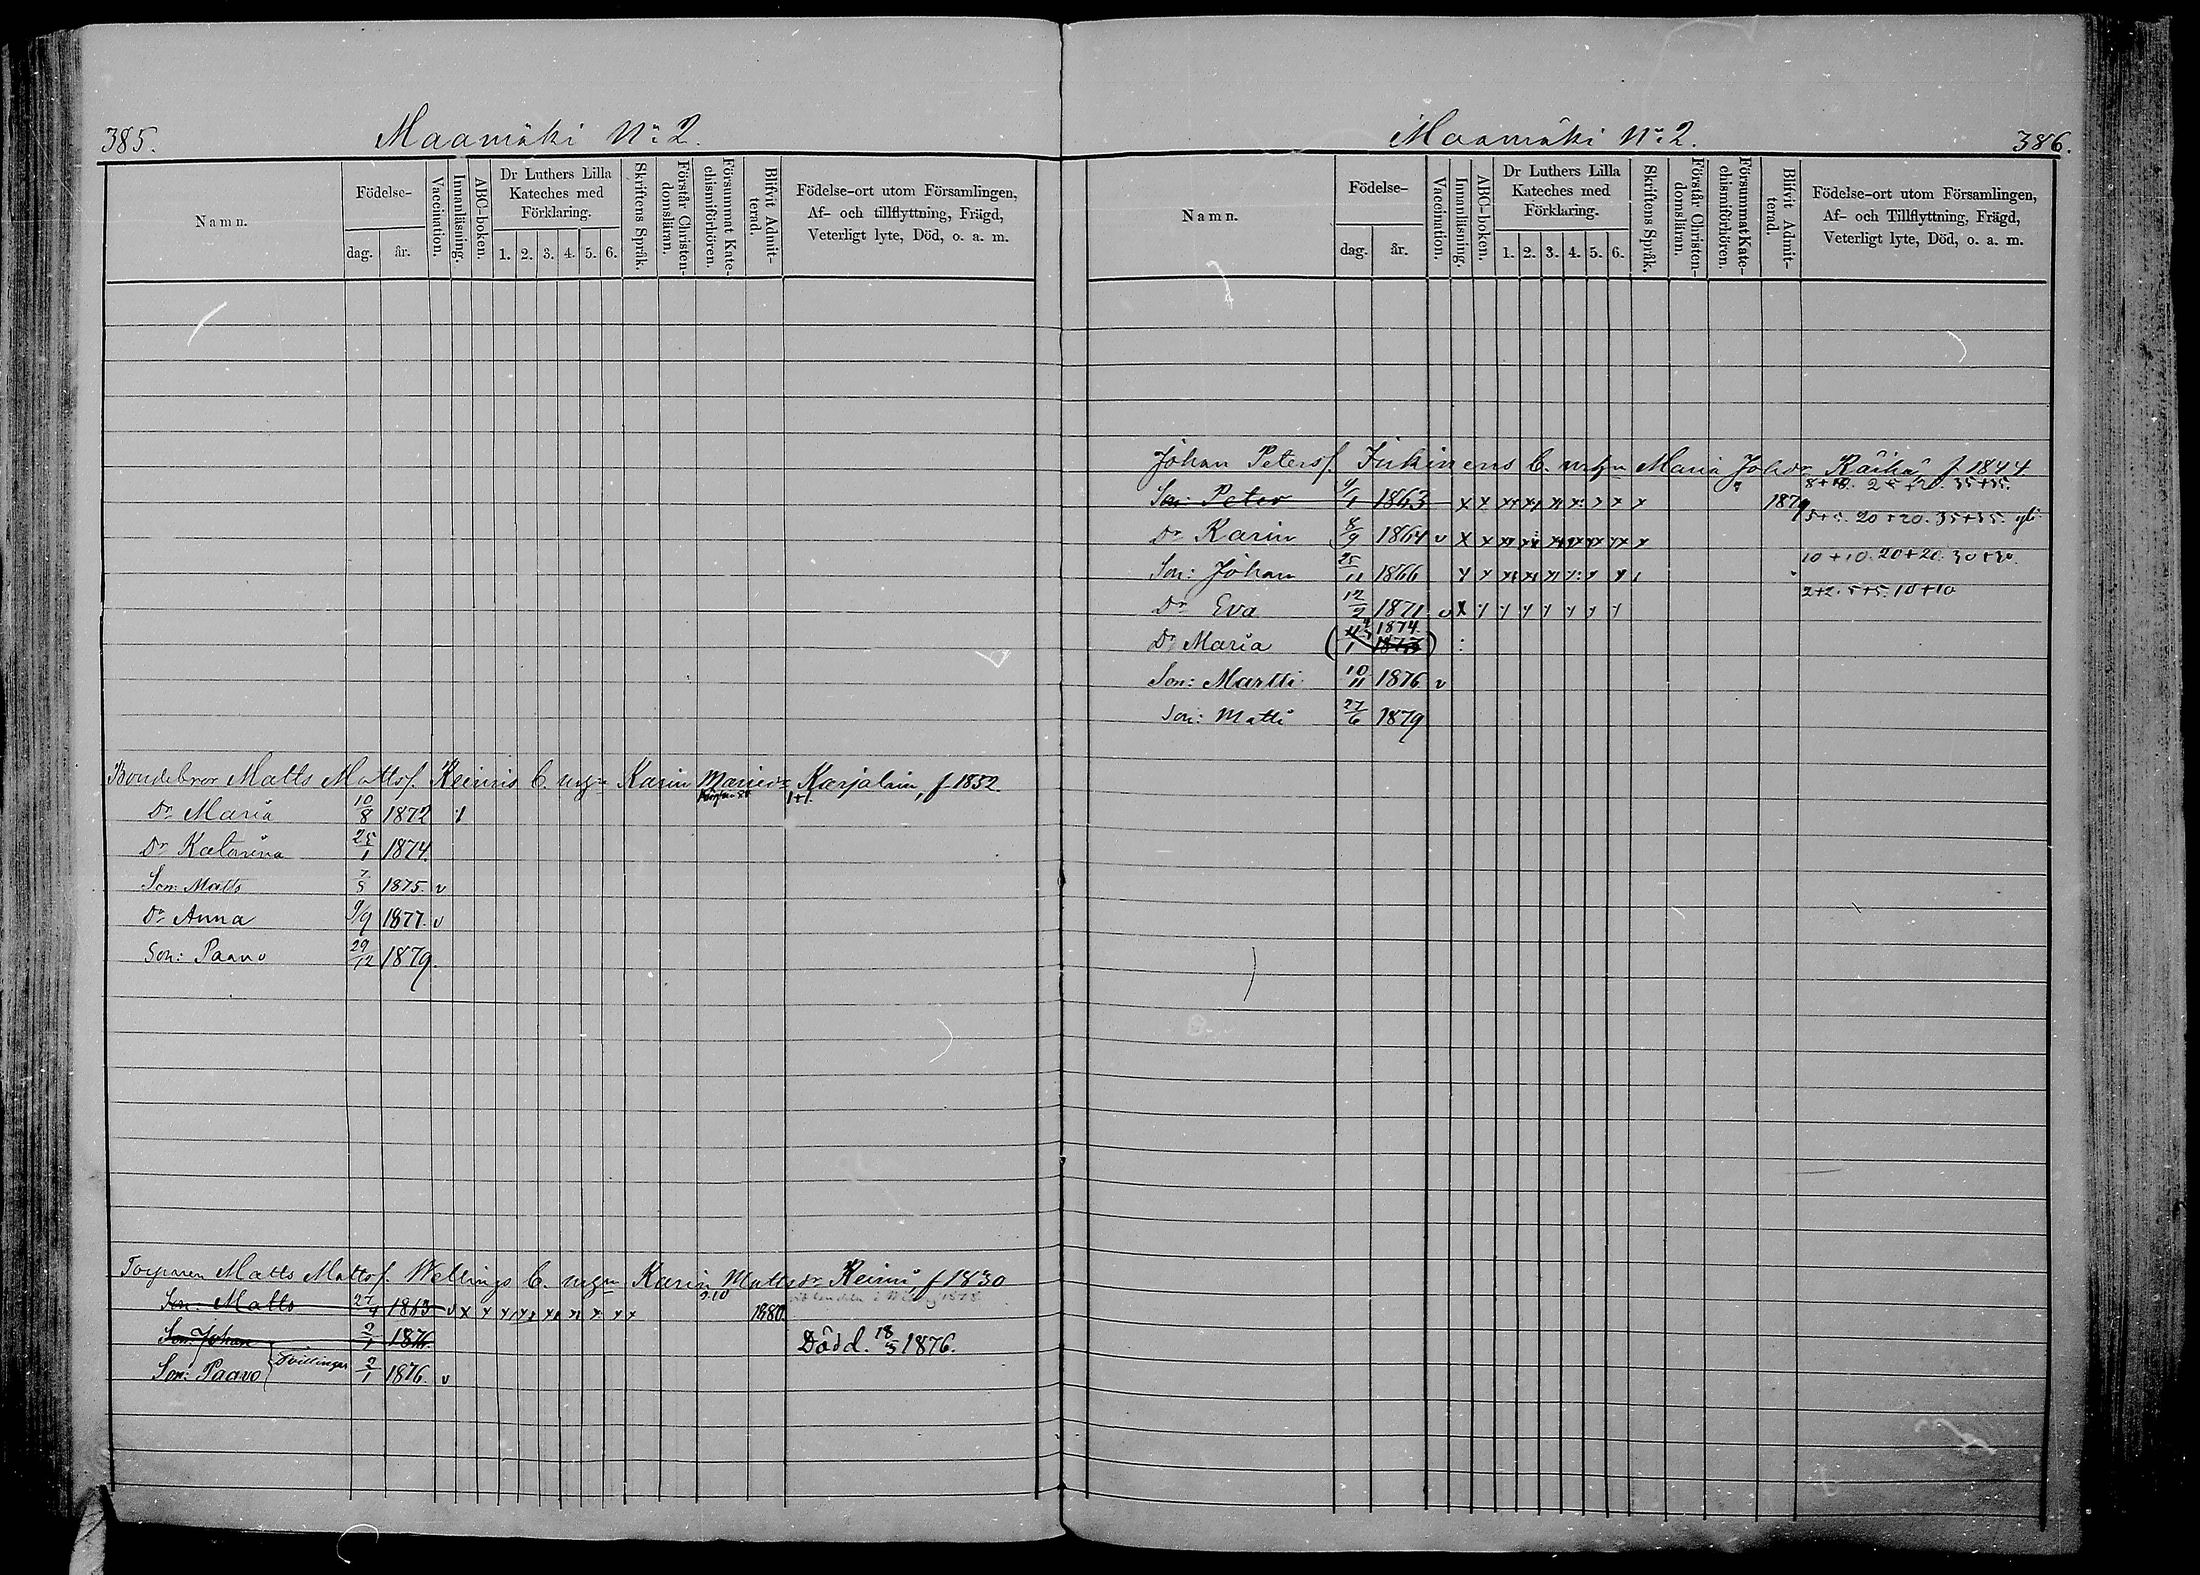 385.
Maamäki No 2.
Namn.
Födelse-
dag. år.
Vaccination.
Innanläsning.
ABC-boken.
Dr Luthers Lilla Kateches med Förklaring.
1. 2. 3. 4. 5. 6.
Skriftens Språk.
Förstår Christen-domsläran.
Försummat Kate-chismiförhören.
Blifvit Admit-terad.
Födelse-ort utom Församlingen,
Af- och tillflyttning, Frägd,
Veterligt lyte, Död, o. a. m.
Bondebror Matts Mattsf. Keinis b. m. hn Karin Karjalain, f. 1852.
1+1.
Dr Maria 10/8 1872
Dr Katarina 25/1 1874.
Son: Matts 1875. v
Dr Anna 9/9 1877. v
Son: Paavo 29/12 1879.
Torparen Matts Mattsf. Wellings b. m. hn Karin Mattsdr Keinni f 1830
Son: Matts 1863 v x x x x x x x x x x 1880.
Son: Johan 2/1 1876 Dödd. 18/3 1876.
Tvillingar
Son: Paavo 2/1 1876. v
Maamäki No 2.
386.
Namn.
Födelse-
dag. år.
Vaccination.
Innanläsning.
ABC-boken.
Dr Luthers Lilla Kateches med Förklaring.
1. 2. 3. 4. 5. 6.
Skriftens Språk.
Förstår Christen-domsläran.
Försummat Kate-chismiförhören.
Blifvit Admit-terad.
Födelse-ort utom Församlingen,
Af- och Tillflyttning, Frägd,
Veterligt lyte, Död, o. a. m.
Johan Petersf. Inkinens b. Maria Johdr Räihä f 1844
Son: Peter 1863 x x x x x x x x x 1879
5+5. 20+20. 35+35.
Dr Karin 8/9 1864 v x x x x x x x x x x
10+10. 20+20. 30+30.
Son: Johan 25/11 1866
2+2. 5+5. 10+10
Dr Eva 12/9 1871. v x
1874.
Dr Maria
Son: Martti 10/11 1876 v
Son: Matti 27/6 1879